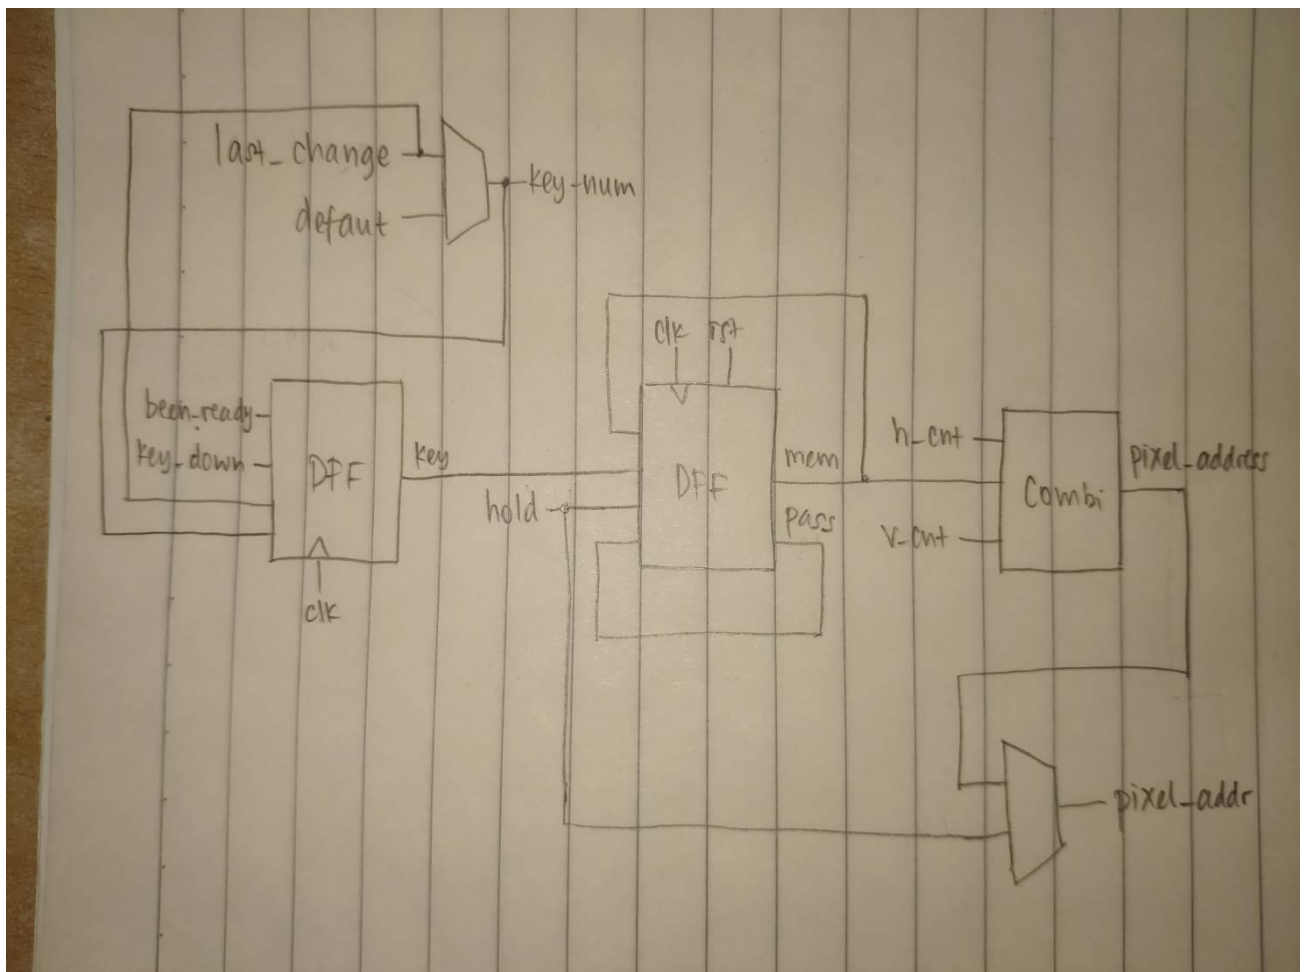 last_change
defaut
key_num
clk
rst
been_ready
key_down
DFF
key
clk
hold
DFF
mem
pass
h_cnt
v_cnt
Combi
pixel_address
pixel_addr